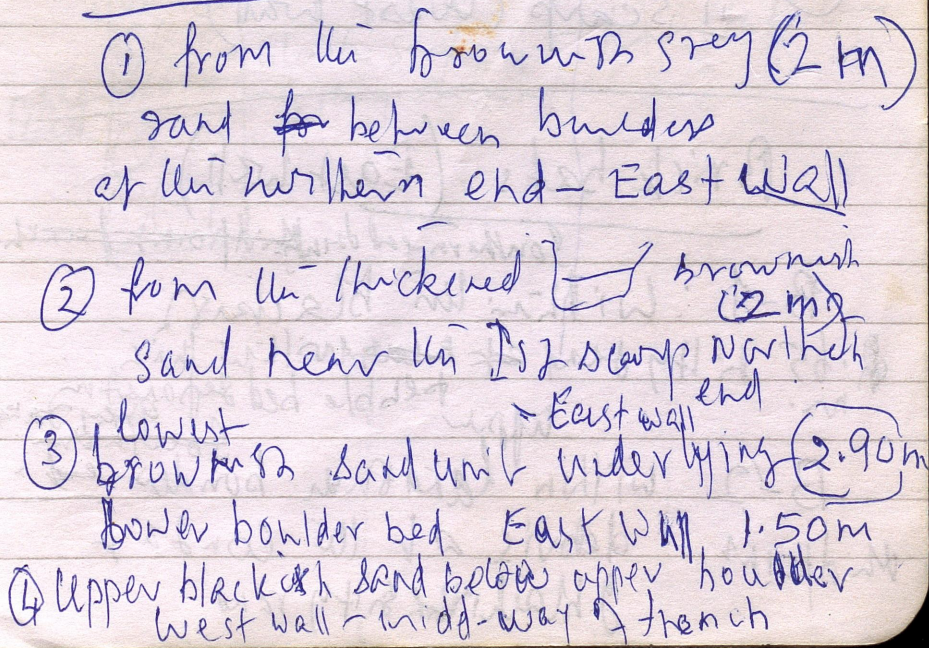 ① from the brownish grey (2 m)
sand between boulders
at the northern end - East Wall
② from the thickened brownish
(2 m)
sand near the Ist scarp North
end
- East wall
③ lowest
brownish sand unit underlying 2.90m
lower boulder bed East Wall 1.50m
④ Upper blackish sand below upper boulder
West wall - midd-way of trench